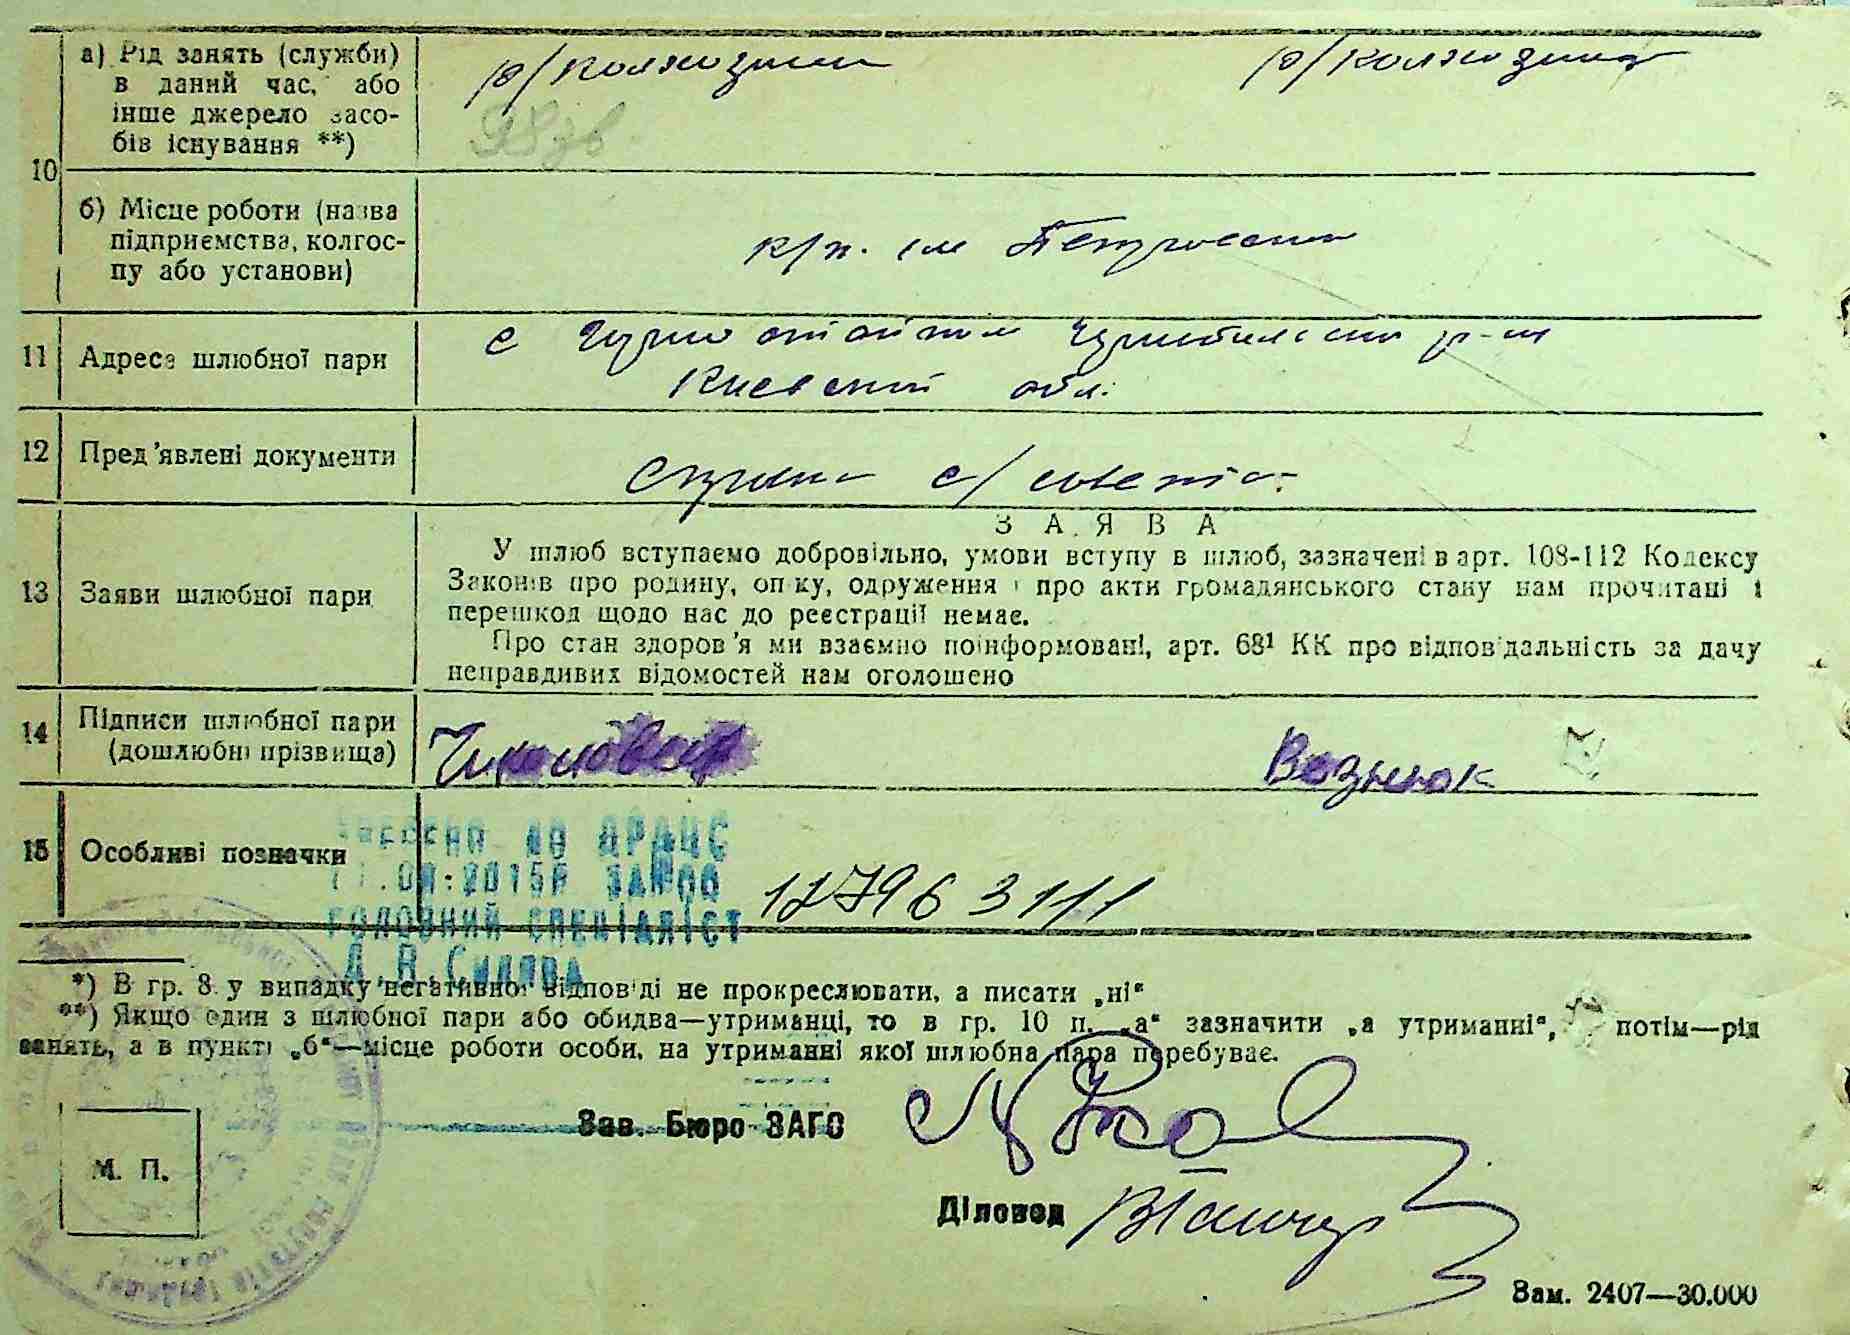 а) Рід занять (служби)
в даний час, або
інше джерело засо-
бів існування **)
р/колхозник
р/колхозница
10
б) Місце роботи (назва
підприємства, колгос-
пу або установи)
к/п. им Петровского
11
Адреса шлюбної пари
с
р-на
Киевской обл.
12
Пред'явлені документи
с/совета.
З А Я В А
13
Заяви шлюбної пари
У шлюб вступаємо добровільно, умови вступу в шлюб, зазначені в арт. 108-112 Кодексу
Законів про родину, опіку, одруження і про акти громадянського стану нам прочитані і
перешкод щодо нас до реєстрації немає.
Про стан здоров'я ми взаємно поінформовані, арт. 68¹ КК про відповідальність за дачу
неправдивих відомостей нам оголошено
14
Підписи шлюбної пари
(дошлюбні прізвища)
Вознюк
15
Особливі позначки
ВНЕСЕНО ДО ДРАЦС
ГОЛОВНИЙ СПЕЦІАЛІСТ
*) В гр. 8 у випадку негативної відповіді не прокреслювати, а писати „ні“
**) Якщо один з шлюбної пари або обидва—утриманці, то в гр. 10 п. „а“ зазначити „а утриманні“, потім—рід
занять, а в пункті „б“—місце роботи особи, на утриманні якої шлюбна пара перебуває.
Зав. Бюро ЗАГС
М. П.
Діловод
Зам. 2407—30.000